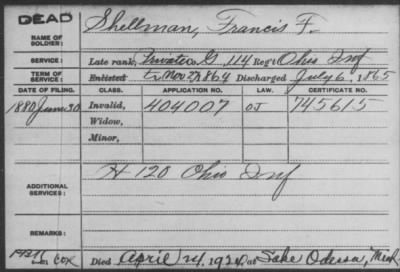 DEAD
Shellman, Francis F.
NAME OF
SOLDIER:
SERVICE: Late rank, Private Co. G, 114 Reg't Ohio Inf
TERM OF
SERVICE: Enlisted Nov 27 1864 Discharged July 6, 1865
DATE OF FILING. CLASS. APPLICATION NO. LAW. CERTIFICATE NO.
1880 June 30 Invalid, 404007 OJ 745615
Widow,
Minor,
H 120 Ohio Inf
ADDITIONAL
SERVICES:
REMARKS:
Cox Died April 24, 1924, at Lake Odessa, Mich